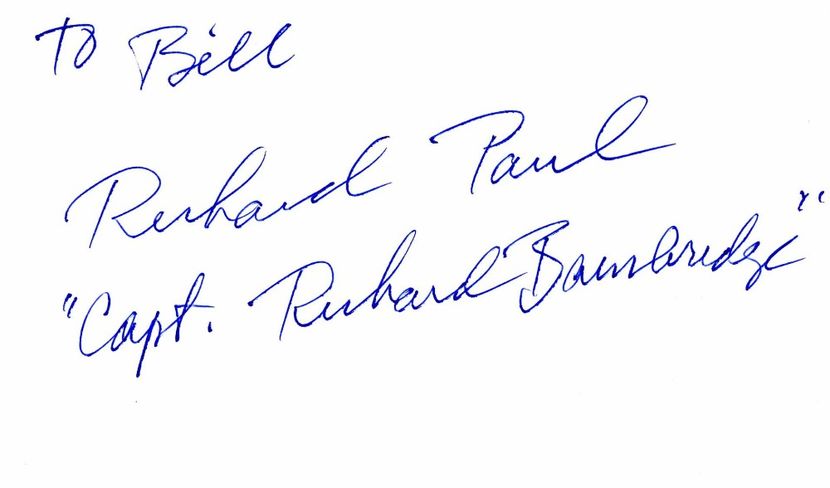 To Bill
Richard Paul
"Capt. Richard Bainbridge"